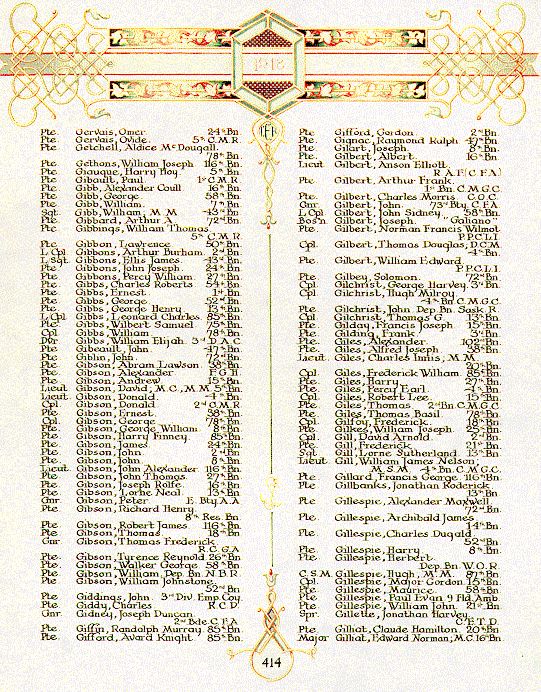 1918
Pte. Gervais, Omer 24th Bn.
Pte. Gervais, Ovide. 5th C.M.R.
Pte. Getchell, Aldice McDougall.
78th Bn.
Pte. Gethons, William Joseph 116th Bn.
Pte. Giauque, Harry Roy. 5th Bn.
Pte. Gibault, Paul 1st C.M.R.
Pte. Gibb, Alexander Coull 16th Bn.
Pte. Gibb, George 58th Bn.
Pte. Gibb, William. 7th Bn.
Sgt. Gibb, William, M.M. 43rd Bn.
Pte. Gibbard, Arthur A. 72nd Bn.
Pte. Gibbings, William Thomas
5th C.M.R.
Pte. Gibbon, Lawrence 50th Bn.
L Cpl Gibbons, Arthur Burham 2nd Bn.
L Sgt. Gibbons, Ellis James. 13th Bn.
Pte. Gibbons, John Joseph 24th Bn.
Pte. Gibbons, Percy William. 27th Bn.
Pte. Gibbs, Charles Roberts 54th Bn.
Pte. Gibbs, Ernest. 1st Bn.
Pte. Gibbs, George 52nd Bn.
Pte. Gibbs, George Henry 13th Bn.
L Cpl Gibbs, Leonard Charles 85th Bn.
Pte. Gibbs, Wilbert Samuel 75th Bn.
Cpl. Gibbs, William 78th Bn.
Dvr. Gibbs, William Elijah. 3rd D.A.C.
Pte. Gibeault, John 47th Bn.
Pte. Giblin, John 72nd Bn.
Pte. Gibson, Abram Lawson 38th Bn.
Pte. Gibson, Alexander F.G.H.
Pte. Gibson, Andrew 15th Bn.
Lieut. Gibson, David, M.C., M.M. 5th Bn.
Lieut. Gibson, Donald 4th Bn.
Cpl. Gibson, Donald 2nd C.M.R.
Pte. Gibson, Ernest 38th Bn.
Cpl. Gibson, George 78th Bn.
Pte. Gibson, George William 8th Bn.
Pte. Gibson, Harry Finney 85th Bn.
Pte. Gibson, James 24th Bn.
Pte. Gibson, John 2nd Bn.
Pte. Gibson, John 8th Bn.
Lieut. Gibson, John Alexander 116th Bn.
Pte. Gibson, John Thomas 27th Bn.
Pte. Gibson, Joseph Rolfe 16th Bn.
Pte. Gibson, Lorne Neal 13th Bn.
Gnr. Gibson, Peter E. Bty. A.A
Pte. Gibson, Richard Henry.
8th Res. Bn.
Pte. Gibson, Robert James 116th Bn.
Pte. Gibson, Thomas. 18th Bn.
Gnr. Gibson, Thomas Frederick
R.C.G.A
Pte. Gibson, Tyrence Reynold 26th Bn
Pte. Gibson, Walker George 58th Bn.
Pte. Gibson, William, Dep. Bn. N.B.R.
Pte. Gibson, William Johnstone
52nd Bn
Pte. Giddings, John. 3rd Div. Emp. Coy.
Pte. Giddy, Charles R.C.D.
Gnr. Gidney, Joseph Duncan
2nd Bde. C.F.A
Pte. Giffin, Randolph Murray. 85th Bn.
Pte. Gifford, Avard Knight. 85th Bn.
Pte. Gifford, Gordon. 2nd Bn.
Pte. Gignac, Raymond Ralph 47th Bn
Pte. Gilart, Joseph 8th Bn.
Pte. Gilbert, Albert 16th Bn.
Lieut Gilbert, Anson Elliott.
R A.F.(C.F.A)
Pte. Gilbert, Arthur Frank
1st Bn. C.M.G.C.
Pte. Gilbert, Charles Morris C.O.C.
Gnr. Gilbert, John. 73rd Bty. C.F.A.
L Cpl. Gilbert, John Sidney. 58th Bn.
Bos'n Gilbert, Joseph. "Galiano"
Pte. Gilbert, Norman Francis Wilmot
P.P.C.L.I.
Cpl. Gilbert, Thomas Douglas, D.C.M.
4th Bn.
Pte. Gilbert, William Edward
P.P.C.L.I.
Pte. Gilbey, Solomon. 72nd Bn.
Cpl. Gilchrist, George Harvey. 3rd Bn.
Cpl. Gilchrist, Hugh Milroy
4th Bn C.M.G.C.
Pte. Gilchrist, John Dep Bn. Sask. R.
Cpl. Gilchrist, Thomas G. 13th Bn.
Pte. Gilday, Francis Joseph 15th Bn.
Pte. Gilding, Frank 3rd Bn.
Pte. Giles, Alexander 102nd Bn.
Pte. Giles, Alfred Joseph 38th Bn.
Lieut. Giles, Charles Innis; M.M.
20th Bn.
Cpl. Giles, Frederick William 85th Bn.
Pte. Giles, Harry 27th Bn.
Pte. Giles, Percy Earl. 4th Bn.
Cpl. Giles, Robert Lee. 15th Bn.
Pte. Giles, Thomas 2nd Bn. C.M.G.C.
Pte. Giles, Thomas Basil 78th Bn.
Cpl. Gilfoy, Frederick. 18th Bn.
Pte. Gilkes, William Joseph 25th Bn.
Cpl. Gill, David Arnold 2nd Bn.
Pte. Gill, Frederick 21st Bn.
Sgt. Gill, Lorne Sutherland 13th Bn.
Lieut. Gill, William James Nelson
M.S.M. 4th Bn. C.M.G.C.
Pte. Gillard, Francis George 116th Bn.
Pte. Gillbanks, Jonathan Roderick
13th Bn.
Pte. Gillespie, Alexander Maxwell
72nd Bn.
Pte. Gillespie, Archibald James
14th Bn.
Pte. Gillespie, Charles Dugald
52nd Bn
Pte. Gillespie, Harry 8th Bn.
Pte. Gillespie, Herbert.
Dep. Bn. W.O.R.
C.S.M. Gillespie, Hugh, M.M. 87th Bn.
Pte. Gillespie, Major Gordon 15th Bn.
Pte. Gillespie, Maurice 58th Bn.
Pte. Gillespie, Paul Evan 9th Fld. Amb.
Pte. Gillespie, William John. 21st Bn.
Spr. Gillette, Jonathan Harvey.
C.E.T.D.
Pte. Gilliat, Claude Hamilton. 20th Bn.
Major Gilliat, Edward Norman; M.C. 16th Bn
414